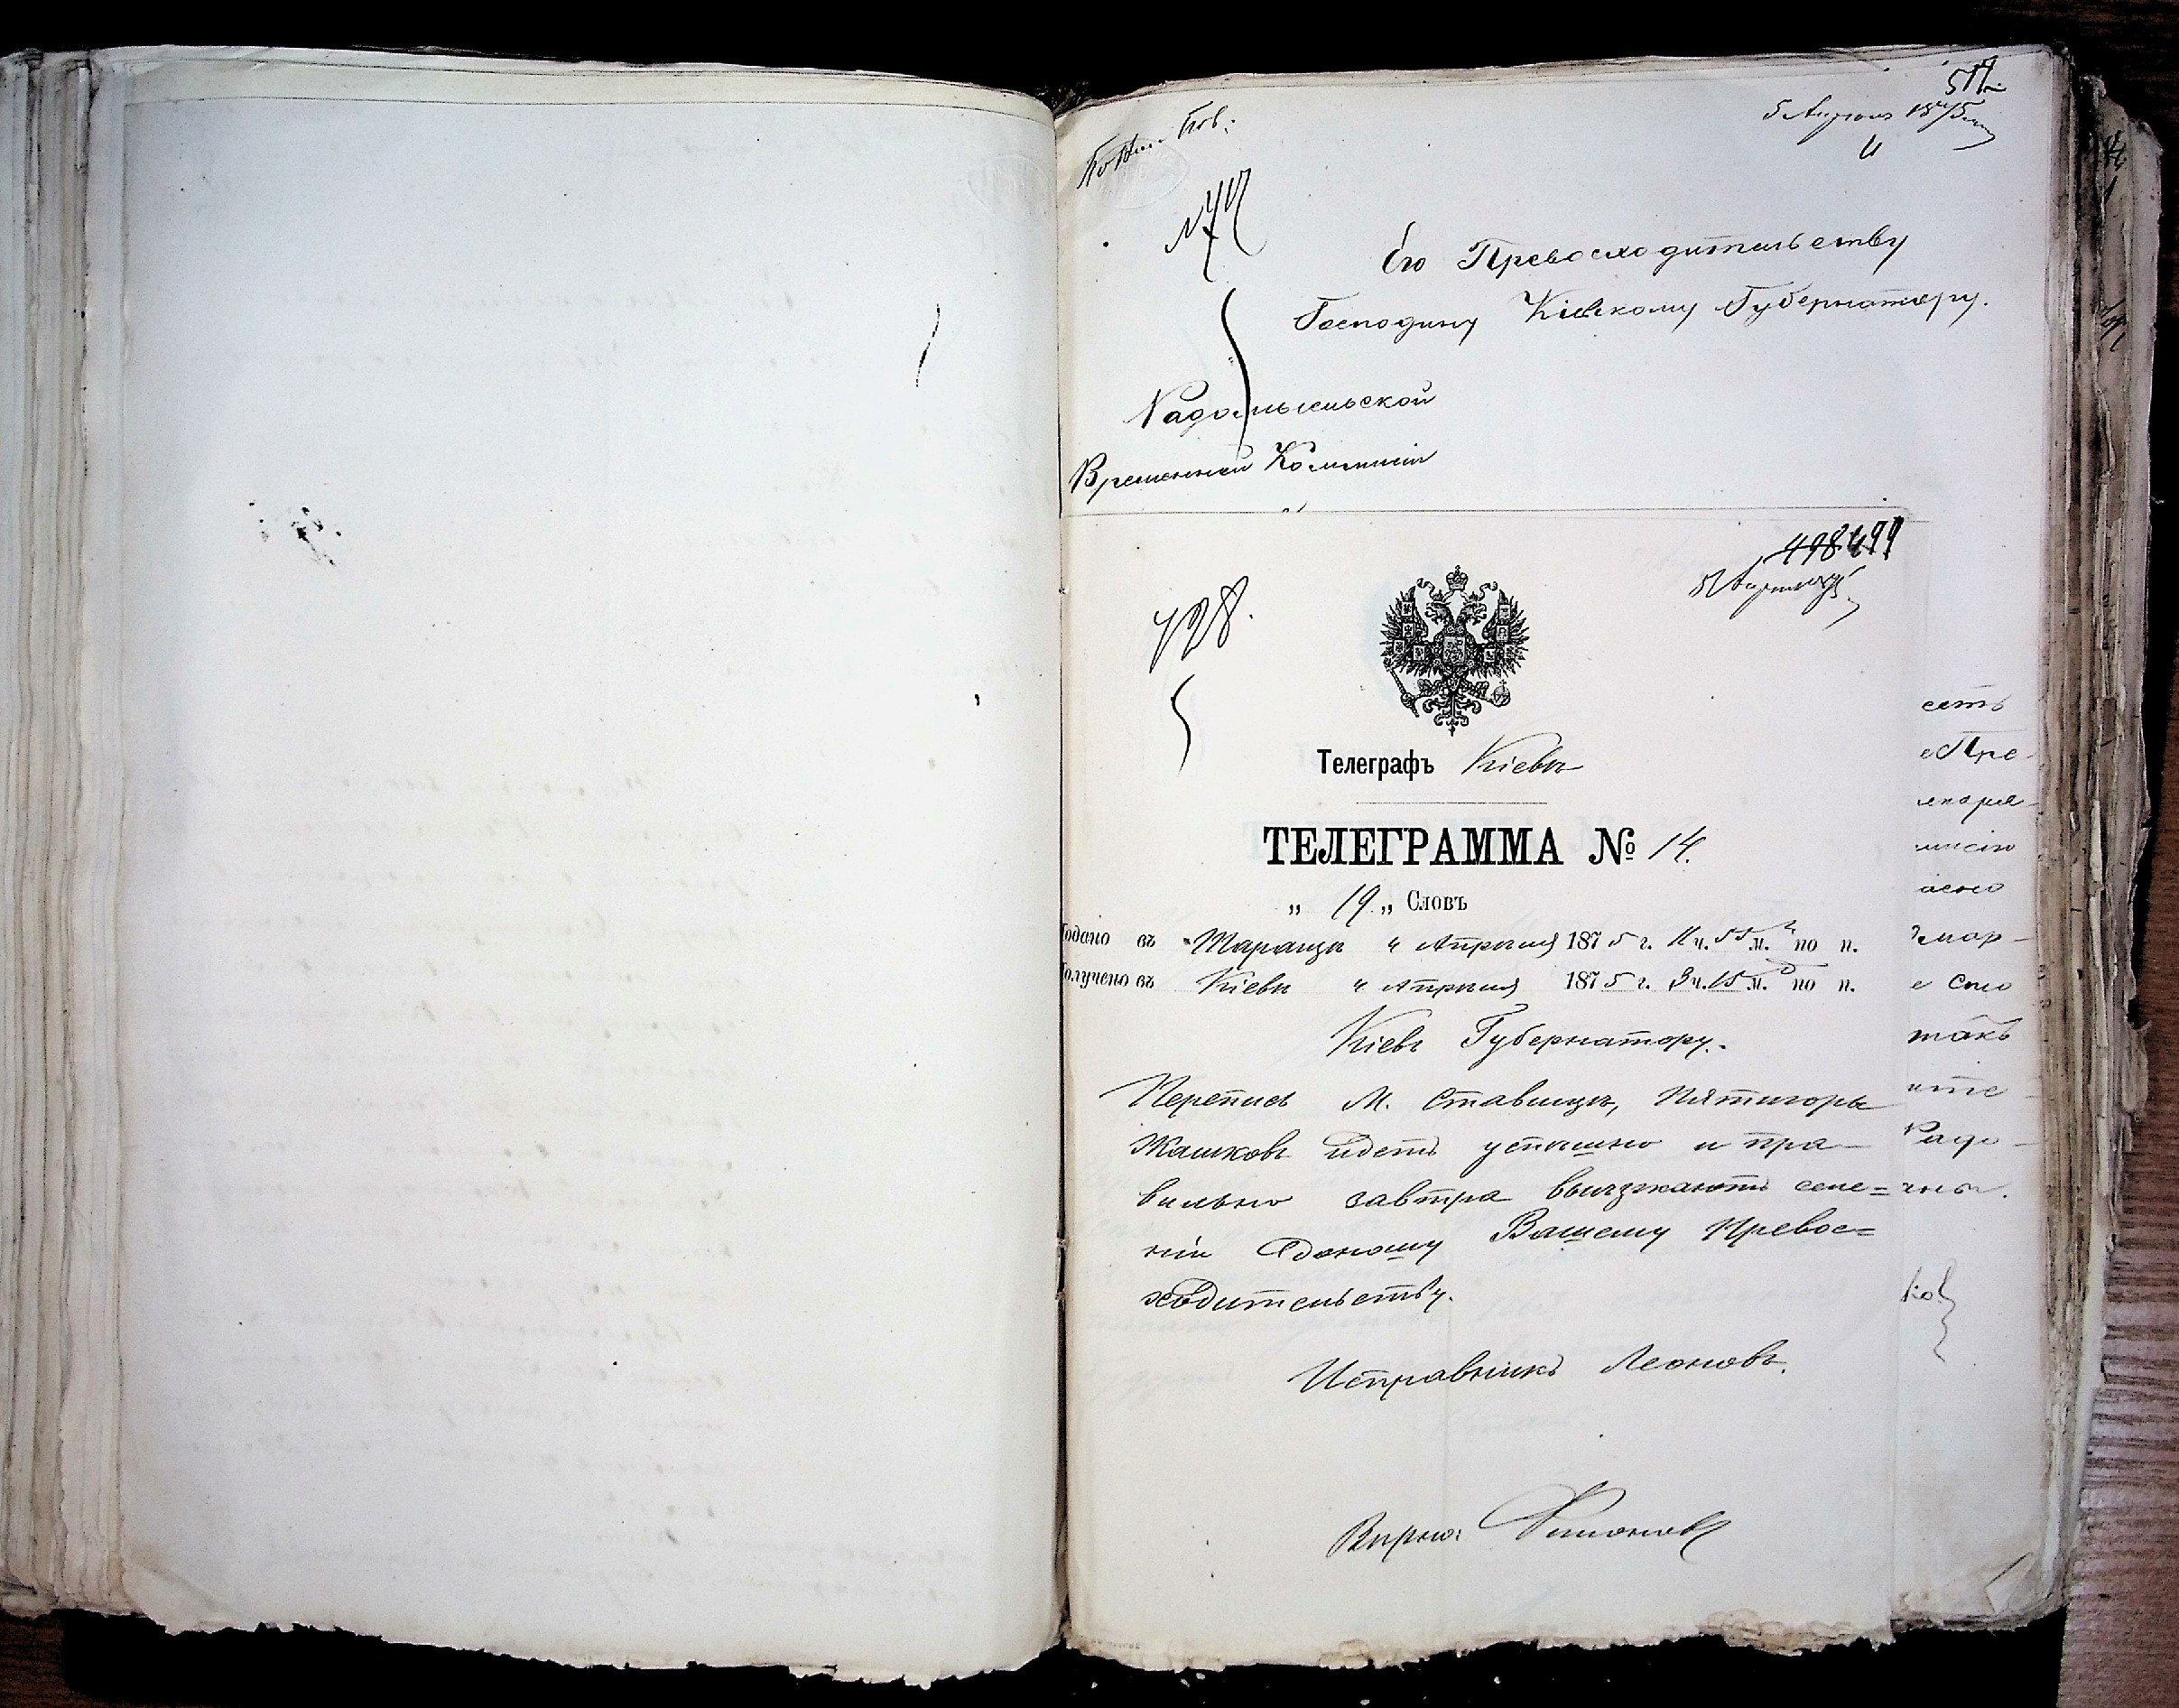 517
5 Апреля 1875
По Вин. Пов.
№
Его Превосходительству
Господину Кіевскому Губернатору.
Радомысльской
Временной Коммисіи
498 499
5 Апреля
728.
Телеграфъ Кіевъ
ТЕЛЕГРАММА № 14.
„ 19 „ Словъ
Подано въ Таращѣ 4 Апрѣля 1875 г. 11 ч. 55 м. по п.
Получено въ Кіевѣ 4 Апрѣля 1875 г. 3 ч. 15 м. по п.
Кіевъ Губернатору.
Перепись М. Ставищъ, Пятигоры
Жашковъ идетъ успѣшно и пра-
вильно завтра выѣзжаютъ селе=
нія доношу Вашему Превос=
ходительству.
Исправникъ Леоновъ.
Вѣрно:
есть
Пре-
мисію
ясно
е Спо
такъ
ите
Радо-